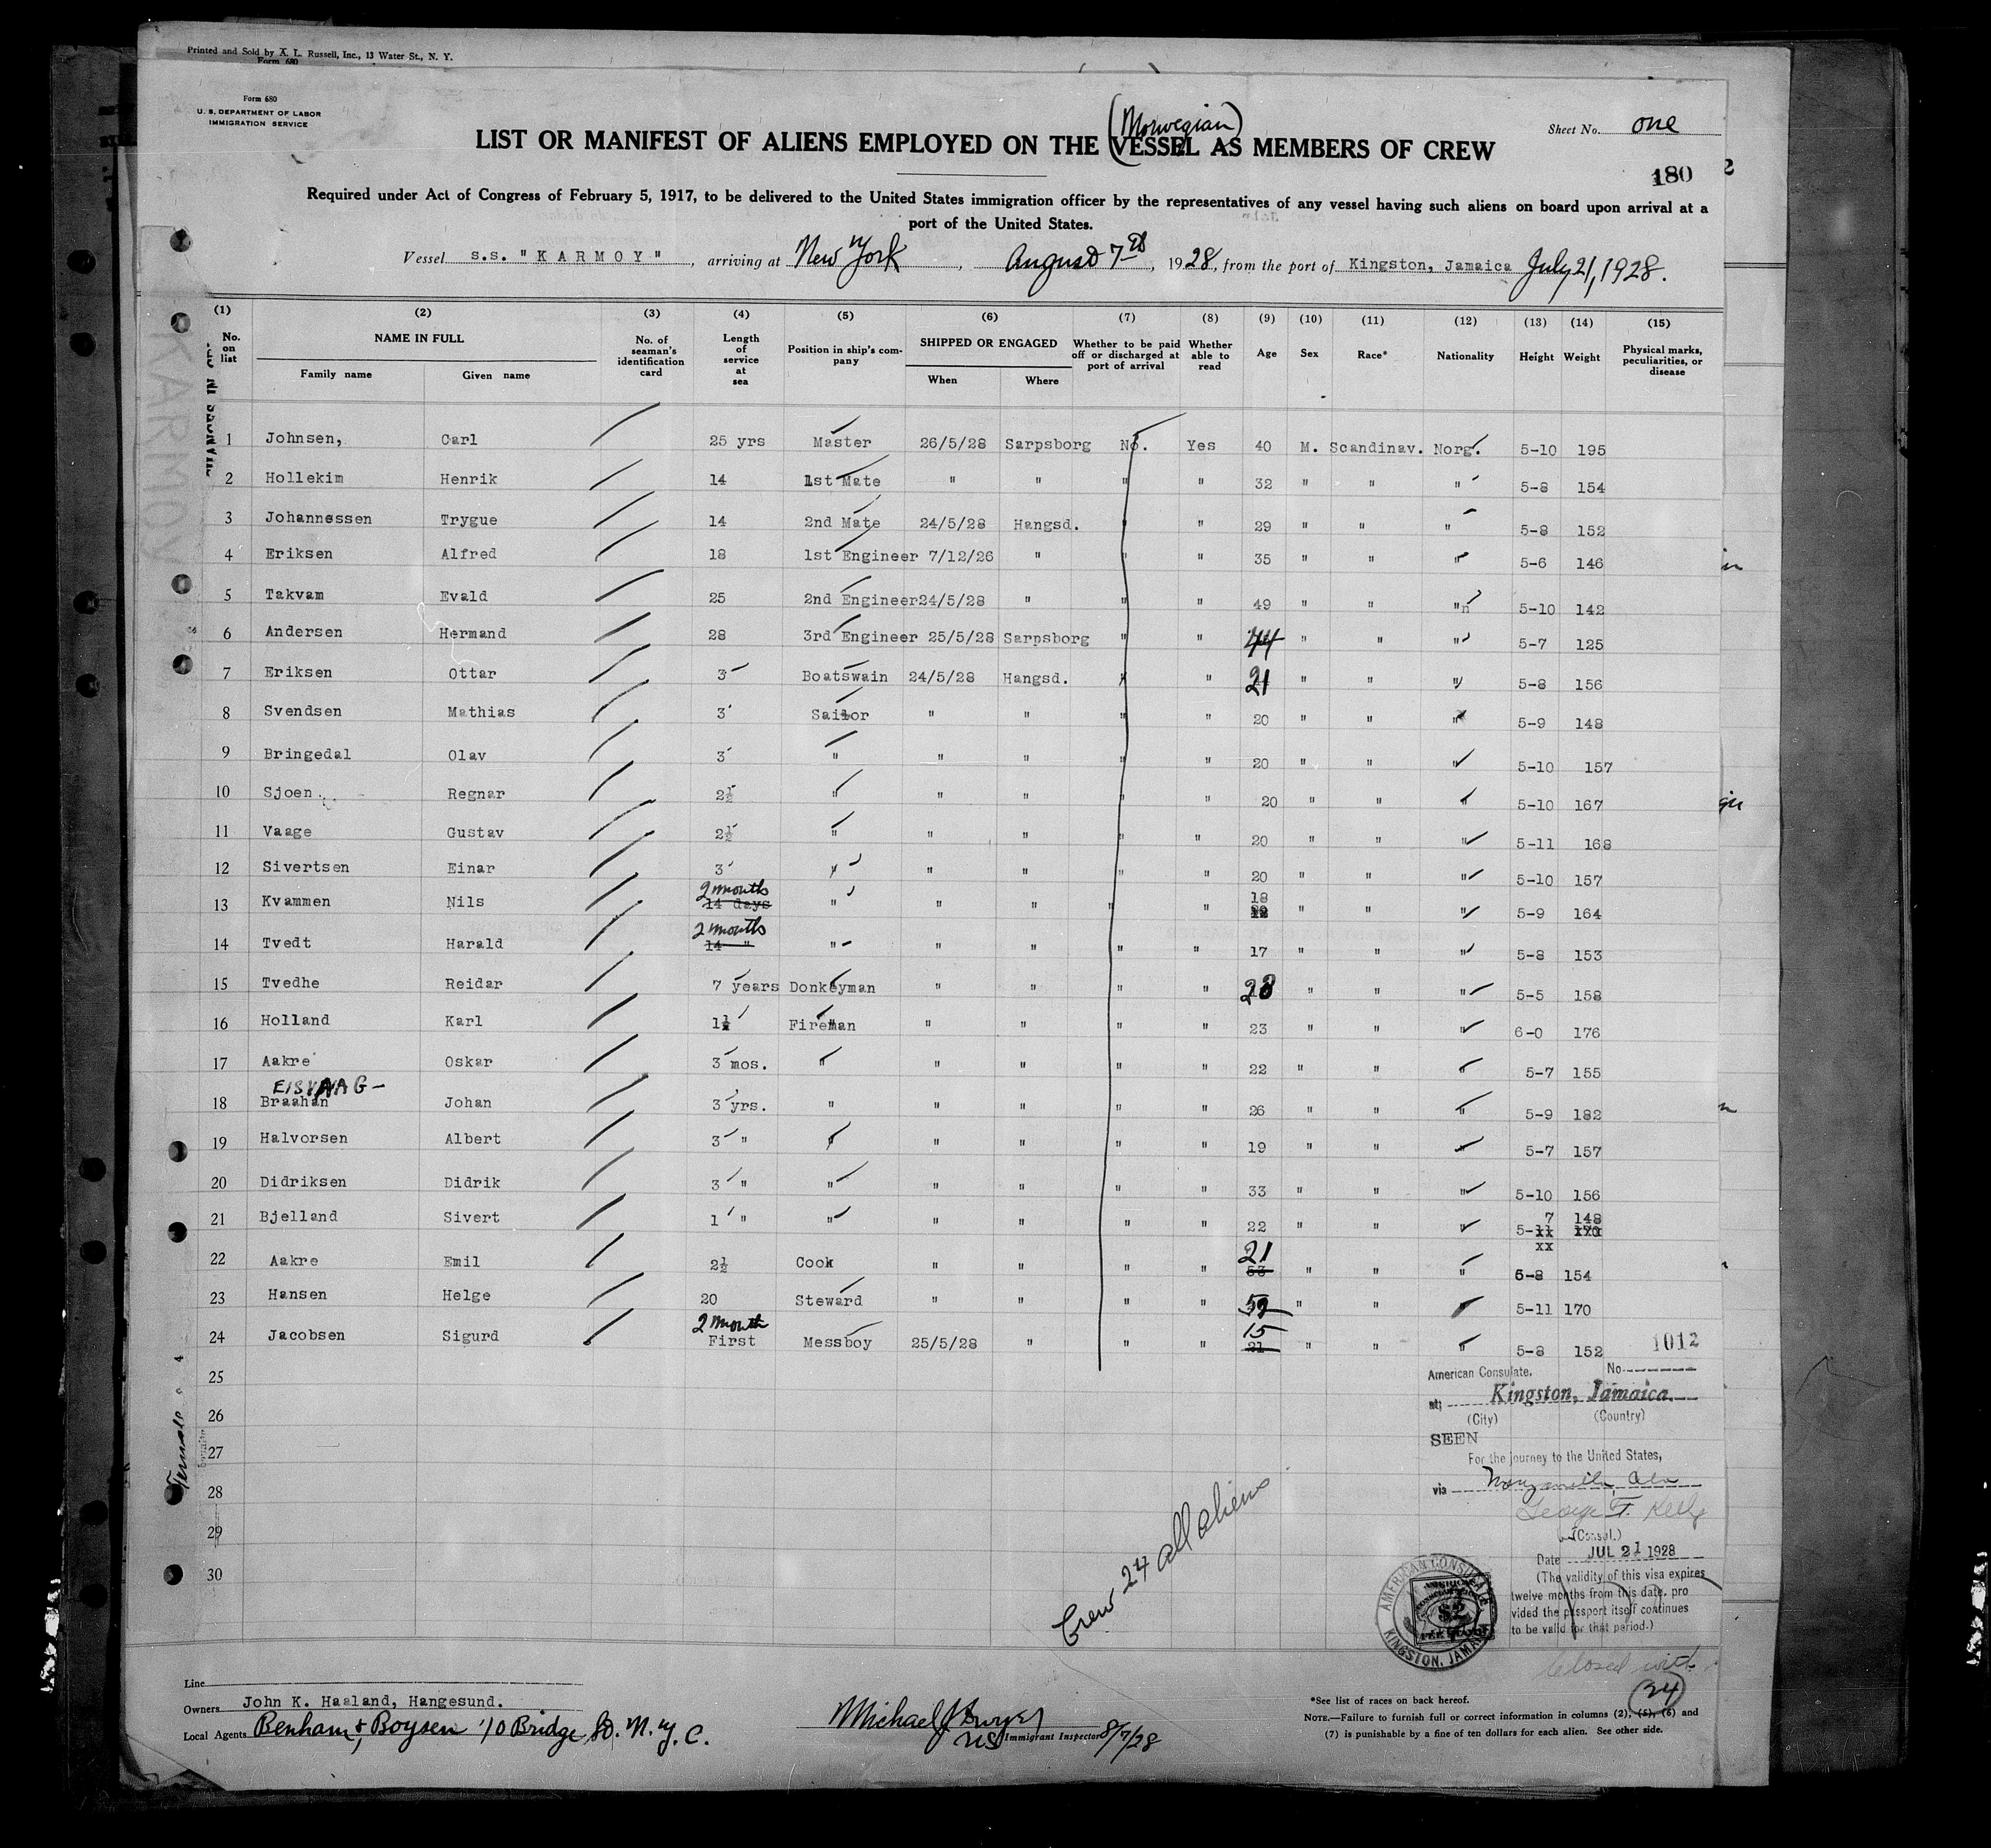 Printed and Sold by A. L. Russell, Inc., 13 Water St., N. Y.
Form 680
Form 680
U. S. DEPARTMENT OF LABOR
IMMIGRATION SERVICE
Sheet No. one
(Norwegian)
LIST OR MANIFEST OF ALIENS EMPLOYED ON THE VESSEL AS MEMBERS OF CREW
180
Required under Act of Congress of February 5, 1917, to be delivered to the United States immigration officer by the representatives of any vessel having such aliens on board upon arrival at a
port of the United States.
Vessel s.s. "KARMOY", arriving at New York, August 7th, 1928, from the port of Kingston, Jamaica July 21, 1928.
(1) (2) (3) (4) (5) (6) (7) (8) (9) (10) (11) (12) (13) (14) (15)
No. on list NAME IN FULL No. of seaman's identification card Length of service at sea Position in ship's company SHIPPED OR ENGAGED Whether to be paid off or discharged at port of arrival Whether able to read Age Sex Race* Nationality Height Weight Physical marks, peculiarities, or disease
Family name Given name When Where
1 Johnsen, Carl 25 yrs Master 26/5/28 Sarpsborg No. Yes 40 M. Scandinav. Norg. 5-10 195
2 Hollekim Henrik 14 1st Mate " " " " 32 " " " 5-8 154
3 Johannessen Trygue 14 2nd Mate 24/5/28 Hangsd. " " 29 " " " 5-8 152
4 Eriksen Alfred 18 1st Engineer 7/12/26 " " " 35 " " " 5-6 146
5 Takvam Evald 25 2nd Engineer 24/5/28 " " " 49 " " "n 5-10 142
6 Andersen Hermand 28 3rd Engineer 25/5/28 Sarpsborg " " 44 " " " 5-7 125
7 Eriksen Ottar 3 Boatswain 24/5/28 Hangsd. " " 21 " " " 5-8 156
8 Svendsen Mathias 3 Sailor " " " " 20 " " " 5-9 148
9 Bringedal Olav 3 " " " " " 20 " " " 5-10 157
10 Sjoen. Regnar 2½ " " " " " 20 " " " 5-10 167
11 Vaage Gustav 2½ " " " " " 20 " " " 5-11 168
12 Sivertsen Einar 3 " " " " " 20 " " " 5-10 157
2 months 18
13 Kvammen Nils 14 days " " " " " " " " 5-9 164
2 months
14 Tvedt Harald 14 " " " " " " 17 " " " 5-8 153
15 Tvedhe Reidar 7 years Donkeyman " " " " 28 " " " 5-5 158
16 Holland Karl 1½ Fireman " " " " 23 " " " 6-0 176
17 Aakre Oskar 3 mos. " " " " " 22 " " " 5-7 155
18 Braahan Johan 3 yrs. " " " " " 26 " " " 5-9 182
19 Halvorsen Albert 3 " " " " " " 19 " " " 5-7 157
20 Didriksen Didrik 3 " " " " " " 33 " " " 5-10 156
7 148
21 Bjelland Sivert 1 " " " " " " 22 " " " 5-
xx
21
22 Aakre Emil 2½ Cook " " " " 53 " " " 5-8 154
23 Hansen Helge 20 Steward " " " " " " " 5-11 170
2 month 15
24 Jacobsen Sigurd First Messboy 25/5/28 " " " 21 " " " 5-8 152
25
26
27
28
29
30
1012
American Consulate. No.
at; Kingston, Jamaica.
(City) (Country)
SEEN
For the journey to the United States,
via
George F. Kelly
(Consul.)
Date JUL 21 1928
(The validity of this visa expires
twelve months from this date, pro
vided the passport itself continues
to be valid for that period.)
AMERICAN CONSULATE
KINGSTON, JAMAICA
$2
Crew 24 all aliens
Closed with
24
Line
Owners John K. Haaland, Hangesund.
Local Agents Benham & Boysen 10 Bridge St. N. Y. C.
Michael J Dwyer
US Immigrant Inspector 8/7/28
*See list of races on back hereof.
NOTE.—Failure to furnish full or correct information in columns (2), (5), (6) and
(7) is punishable by a fine of ten dollars for each alien. See other side.
KARMOY